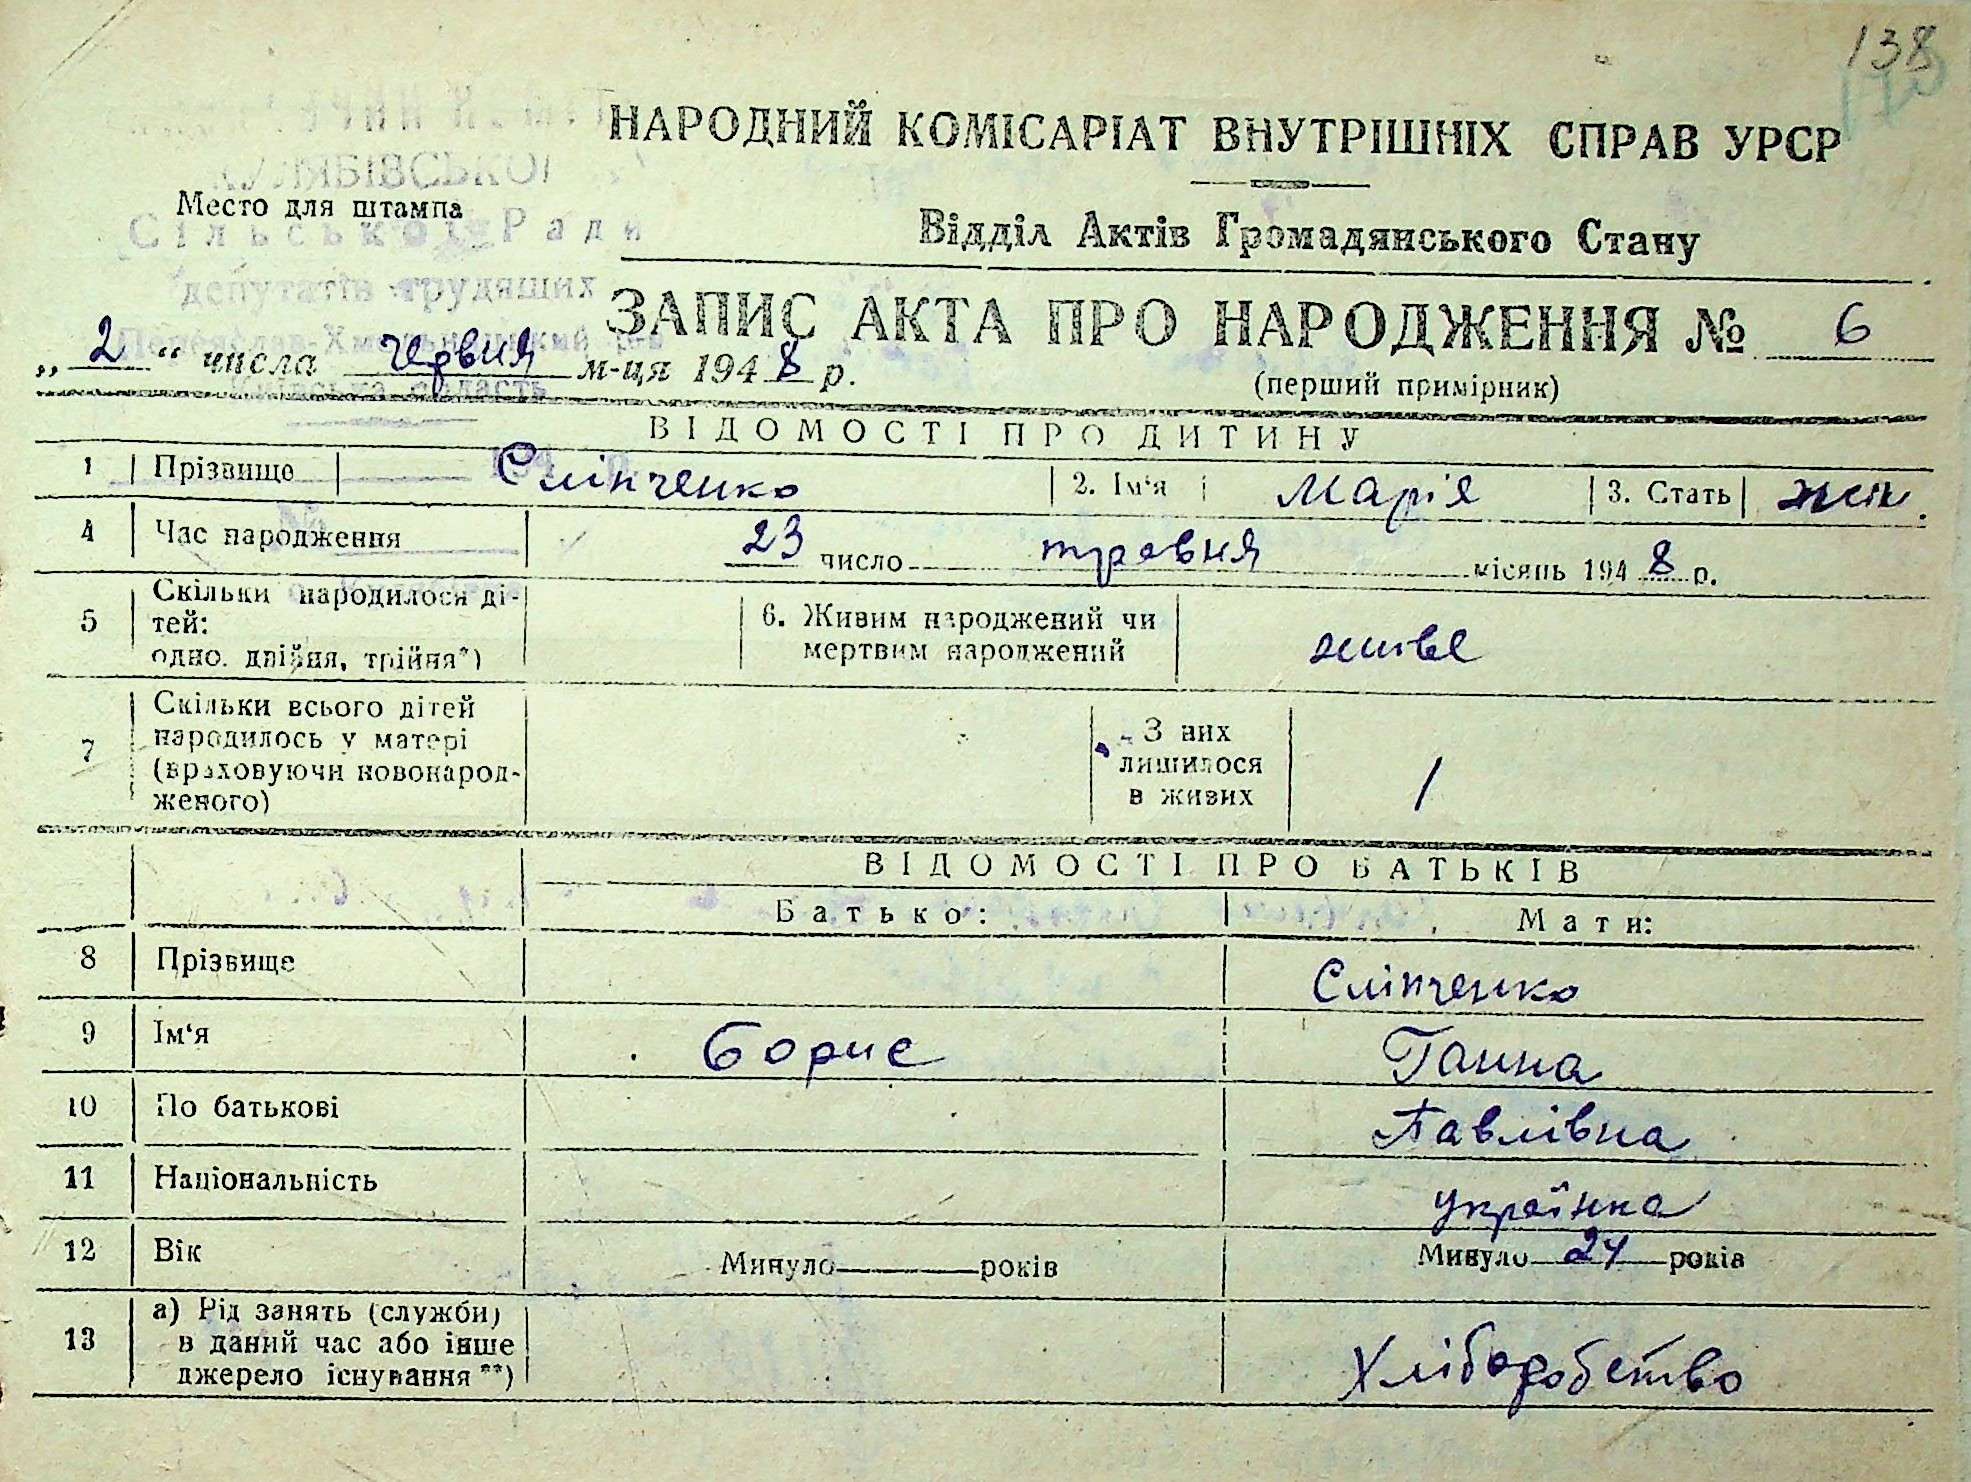 138
НАРОДНИЙ КОМІСАРІАТ ВНУТРІШНІХ СПРАВ УРСР
КУЛЯБІВСЬКОЇ
Место для штампа
Сільської Ради
Відділ Актів Громадянського Стану
депутатів трудящих
ЗАПИС АКТА ПРО НАРОДЖЕННЯ № 6
Переяслав-Хмельницький р-н
„2“ числа червня м-ця 1948 р.
(перший примірник)
Київська область
ВІДОМОСТІ ПРО ДИТИНУ
1 Прізвище Сліпченко 2. Ім'я Марія 3. Стать жін.
4 Час народження 23 число травня місяць 1948 р.
5 Скільки народилося ді-
тей:
одно, двійня, трійня*)
6. Живим народжений чи
мертвим народжений
живе
7 Скільки всього дітей
народилось у матері
(враховуючи новонарод-
женого)
З них
лишилося
в живих
1
ВІДОМОСТІ ПРО БАТЬКІВ
Батько: Мати:
8 Прізвище Сліпченко
9 Ім'я Борис Ганна
10 По батькові Павлівна
11 Національність українка
12 Вік Минуло років Минуло 24 років
13 а) Рід занять (служби)
в даний час або інше
джерело існування **)
Хліборобство